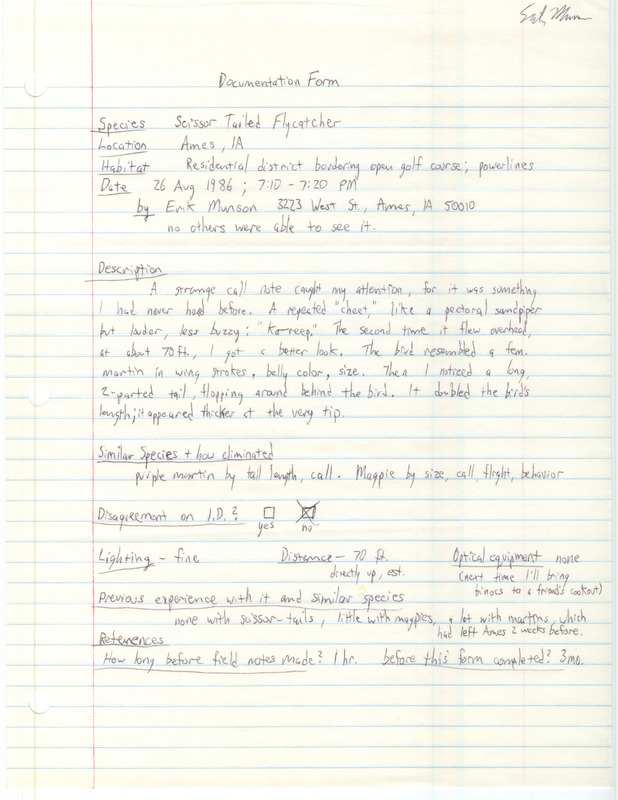 Erik Munson
Documentation Form
Species Scissor Tailed Flycatcher
Location Ames, IA
Habitat Residential district bordering open golf course; powerlines
Date 26 Aug 1986; 7:10 - 7:20 PM
by Erik Munson 3223 West St., Ames, IA 50010
no others were able to see it.
Description
A strange call note caught my attention, for it was something
I had never heard before. A repeated "cheet," like a pectoral sandpiper
but louder, less buzzy: "Ka-reep." The second time it flew overhead,
at about 70 ft., I got a better look. The bird resembled a fem.
martin in wing strokes, belly color, size. Then I noticed a long,
2-parted tail, flopping around behind the bird. It doubled the bird's
length; it appeared thicker at the very tip.
Similar Species + how eliminated
purple martin by tail length, call. Magpie by size, call, flight, behavior
Disagreement on I.D.? yes no
Lighting - fine Distance - 70 ft. Optical equipment none
directly up, est. (next time I'll bring
binocs to a friend's cookout)
Previous experience with it and similar species
none with scissor-tails, little with magpies, a lot with martins, which
had left Ames 2 weeks before.
References
How long before field notes made? 1 hr. before this form completed? 3 mo.